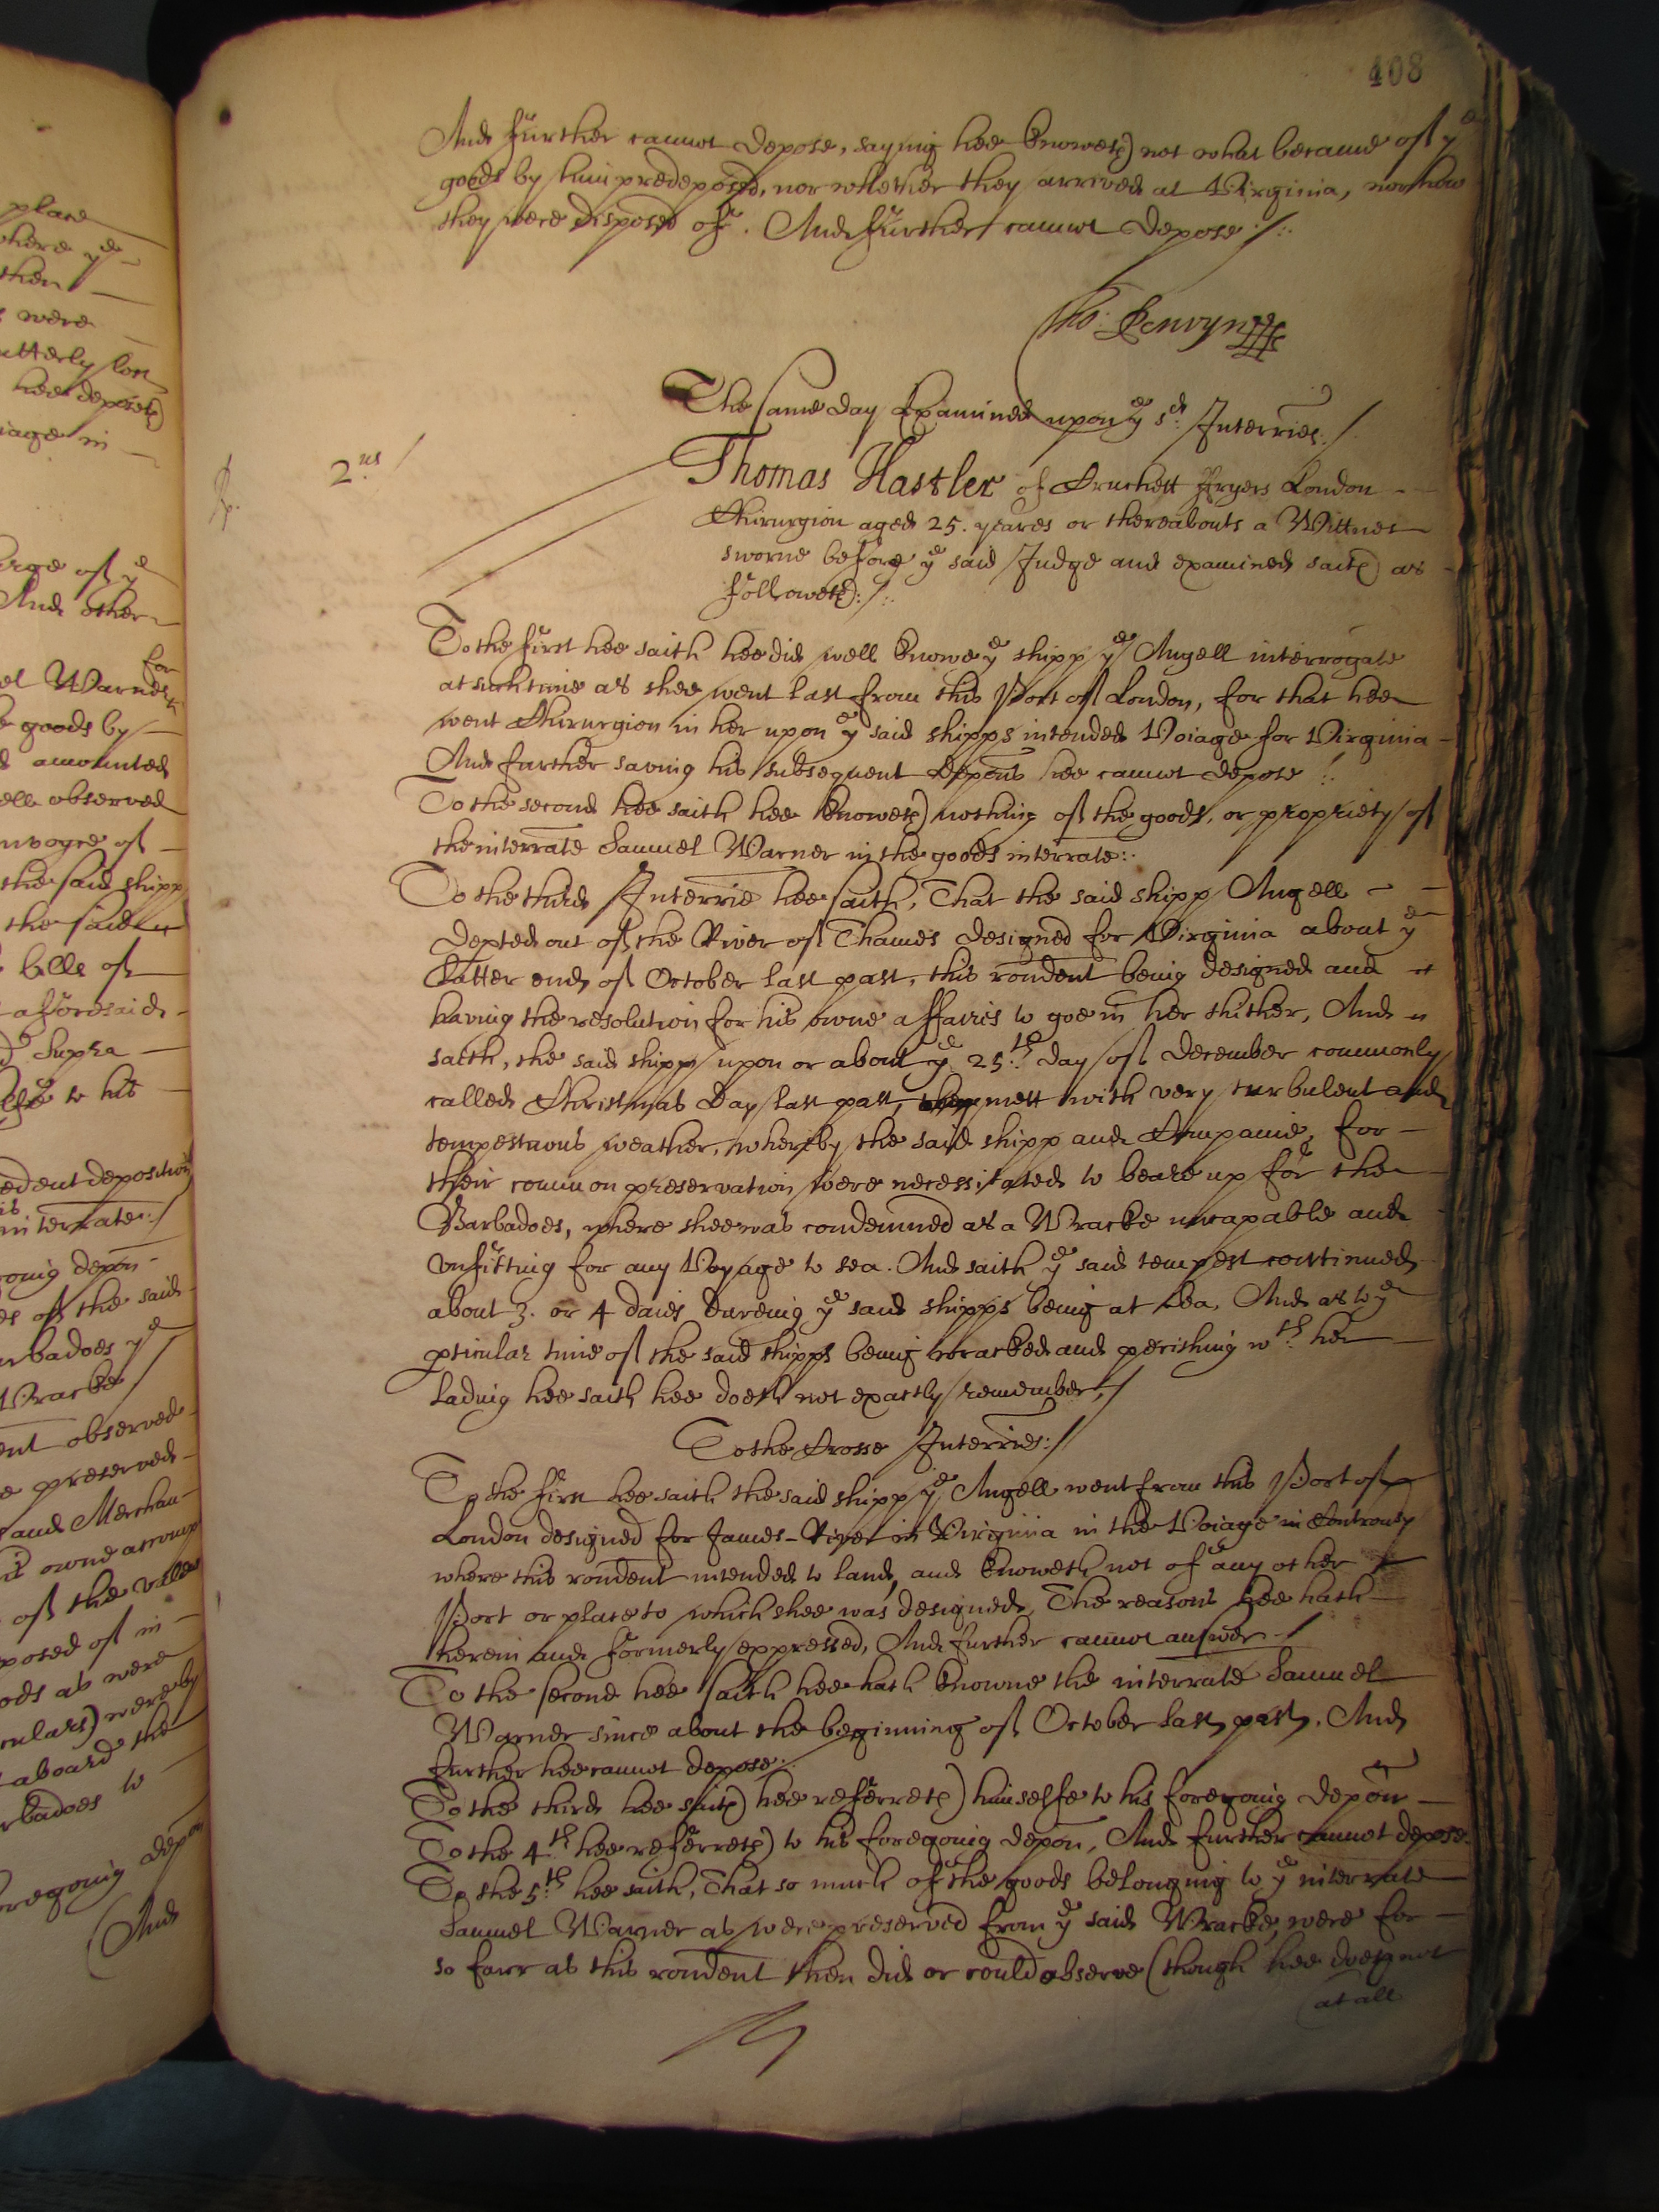 place
where ye
then
were
utterly lost
hee deposeth
iage in
arge of ye
And other
for
el Warner
e goods by
d amounted
ell observed
nvoyce of
the said shipp
the said
bills of
afforesaid
Supra
to his
edent deposition
interrate:/
going depon
es of the said
rbadoes ye
Wracke
ent observed
e preserved
and Merchan
owne accomp
of the value
posed of in
ods as were
culars) were by
aboard the
rbadoes to
oregoing depon
(And
408
And further cannot depose, saying hee knoweth not what became of ye
goods by him predeposed, nor whether they arrived at Virginia, nor how
they were disposed of. And further cannot depose:/:
Tho: Benvyn
The same day Examined upon ye sd: Interries:/
2.us
Thomas Hastler of Crutchett ffryers London
Chirurgion aged 25. yeares or thereabouts a Wittnes
sworne before ye said Judge and examined saith as
followeth:/:
To the first hee saith hee did well knowe ye shipp ye Angell interrogate
at such time as shee went last from this Port of London, for that hee
went Chirurgion in her upon ye said shipps intended Voiage for Virginia
And further saving his subsequent depons hee cannot depose:
To the second hee saith hee knoweth nothing of the goods, or propriety of
the interrate Samuel Warner in the goods interrate:
To the third Interrie hee saith, That the said shipp Angell
depted out of the River of Thames designed for Virginia about ye
latter end of October last past, this rondent being designed and
having the resolution for his owne affaires to goe in her thither, And
saith, the said shipp upon or about ye 25th: day of December commonly
called Christmas Day last past, mett with very turbulent and
tempestuous weather, whereby the said shipp and Companie, for
their common preservation were necessitated to beare up for the
Barbadoes, where shee was condemned as a Wracke uncapable and
unfitting for any Voyage to sea. And saith ye said tempest continued
about 3. or 4 daies dureing ye said shipps being at sea, And as to ye
pticular time of the said shipps being wracked and perishing wth: her
ladeing hee saith hee doeth not exactly remember,/
To the Crosse Interries:/
To the first hee saith the said shipp ye Angell went from this Port of
London designed for James-River in Virginia in the Voiage in Controusy
where this rondent intended to land, and knoweth not of any other
Port or place to which shee was designed, The reasons hee hath
herein and formerly expressed, And further cannot answer
To the second hee saith hee hath knowne the interrate Samuel
Warner since about the beginning of October last past, And
further hee cannot depose:
To the third hee saith hee referreth himselfe to his foregoing depon
To the 4th: hee referreth to his foregoing depon, And further cannot depose
To the 5th: hee saith, That so much of the goods belonging to ye interrate
Samuel Warner as were preserved from ye said Wracke, were for
so farr as this rondent then did or could observe (though hee doeth not
(at all